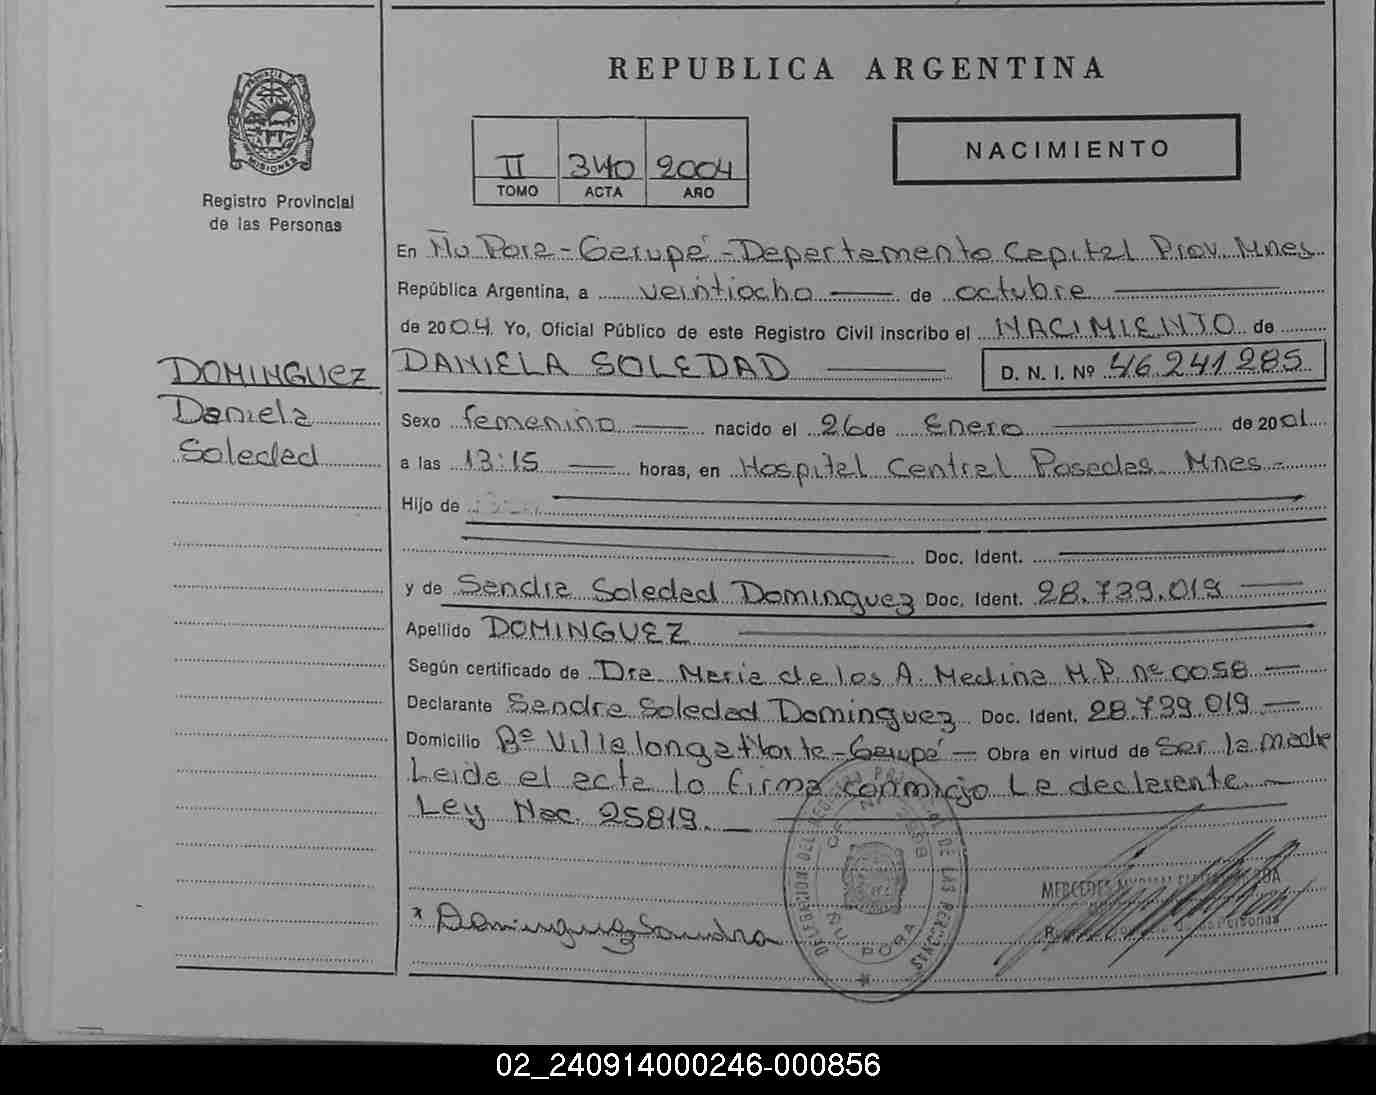 REPUBLICA ARGENTINA
PROVINCIA DE
MISIONES
Registro Provincial
de las Personas
II 340 2004
TOMO ACTA AÑO
NACIMIENTO
En Ñu Pora - Garupá - Departamento Capital Prov. Mnes
República Argentina, a veintiocho de octubre
de 2004. Yo, Oficial Público de este Registro Civil inscribo el NACIMIENTO de
DOMINGUEZ
Daniela
Soledad
DANIELA SOLEDAD D. N. I. Nº 46.241.285
Sexo femenino nacido el 26 de Enero de 2001
a las 13:15 horas, en Hospital Central Posadas Mnes -
Hijo de
Doc. Ident.
y de Sandra Soledad Dominguez Doc. Ident. 28.739.019
Apellido DOMINGUEZ
Según certificado de Dra. Maria de los A. Medina M.P. nº 0058
Declarante Sandra Soledad Dominguez Doc. Ident. 28.739.019
Domicilio Bº Villalonga Norte - Garupá - Obra en virtud de Ser la madre
Leida el acta lo firma conmigo La declarante.
Ley Nac. 25819.
DELEGACION DEL REGISTRO PROVINCIAL DE LAS PERSONAS
ÑU PORA
MERCEDES
Personas
x Dominguez Sandra
02_240914000246-000856